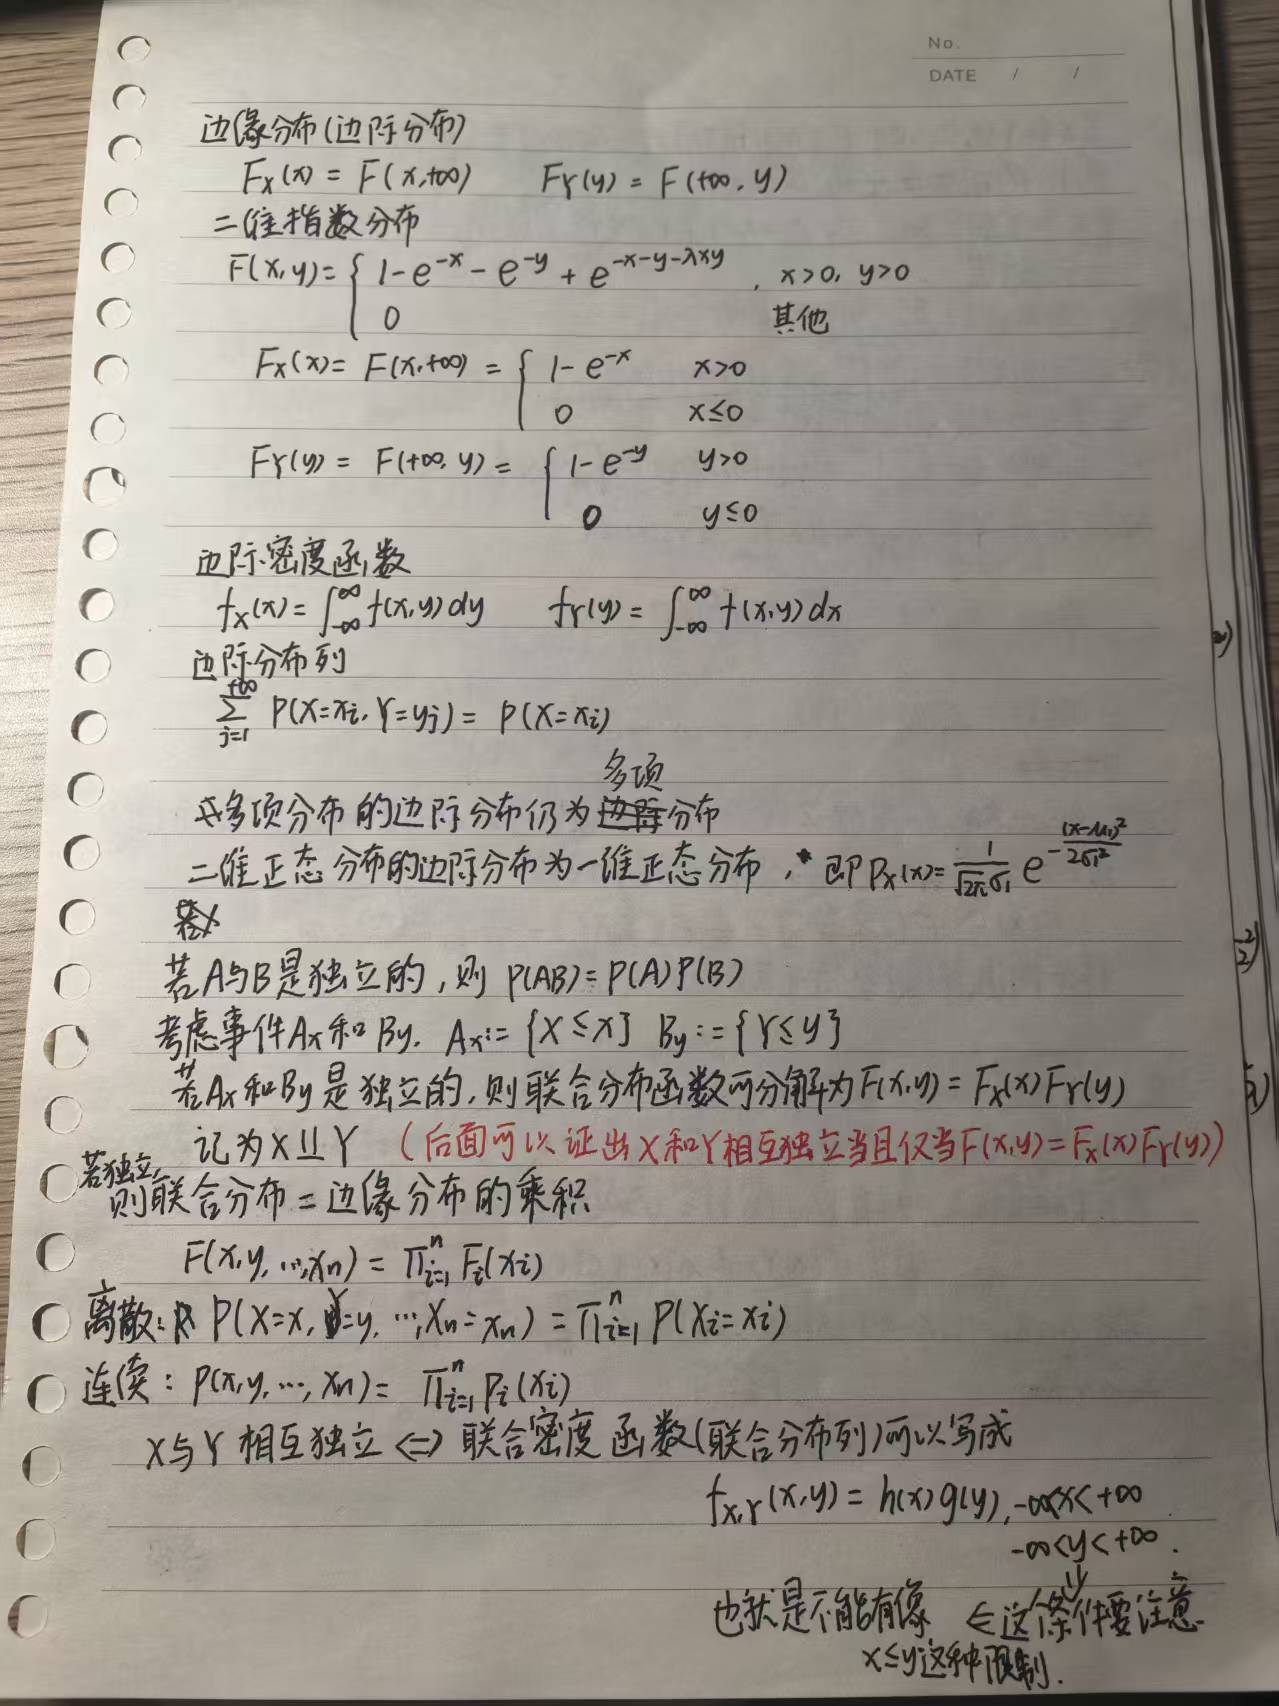 No.
DATE / /
边缘分布(边际分布)
Fx(x) = F(x,+∞) FY(y) = F(+∞, y)
二维指数分布
F(x,y)= { 1-e^{-x}-e^{-y}+e^{-x-y-λxy}, x>0, y>0
0 其他
Fx(x)= F(x,+∞) = { 1-e^{-x} x>0
0 x≤0
FY(y) = F(+∞, y) = { 1-e^{-y} y>0
0 y≤0
边际密度函数
fx(x)=∫_{-∞}^{∞} f(x,y)dy fY(y)=∫_{-∞}^{∞} f(x,y)dx
边际分布列
∑_{j=1}^{+∞} P(X=xi, Y=yj) = P(X=xi)
多项分布的边际分布仍为多项分布
二维正态分布的边际分布为一维正态分布, 即Px(x)=\frac{1}{\sqrt{2π}σ1} e^{-\frac{(x-μ1)^2}{2σ1^2}}
若A与B是独立的,则 P(AB)=P(A)P(B)
考虑事件Ax和By. Ax:={X≤x} By:={Y≤y}
若Ax和By是独立的,则联合分布函数可分解为F(x,y)=Fx(x)FY(y)
记为X⊥⊥Y (后面可以证出X和Y相互独立当且仅当F(x,y)=Fx(x)FY(y))
若独立,
则联合分布=边缘分布的乘积
F(x,y,…,xn) = ∏_{i=1}^{n} Fi(xi)
离散: P(X=x, Y=y, …, Xn=xn) = ∏_{i=1}^{n} P(Xi=xi)
连续: P(x,y,…,xn) = ∏_{i=1}^{n} Pi(xi)
X与Y相互独立 ⟺ 联合密度函数(联合分布列)可以写成
fX,Y(x,y)=h(x)g(y), -∞<x<+∞
-∞<y<+∞.
⇓
也就是不能有像 ⇐这个条件要注意.
x≤y这种限制.